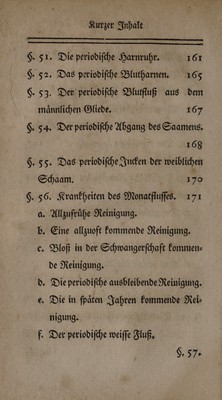 Kurzer Inhalt
§. 51. Die periodische Harnruhr. 161
§. 52. Das periodische Blutharnen. 165
§. 53. Der periodische Blutfluß aus dem
männlichen Gliede. 167
§. 54. Der periodische Abgang des Saamens.
168
§. 55. Das periodische Jucken der weiblichen
Schaam. 170
§. 56. Krankheiten des Monatflusses. 171
a. Allzufrühe Reinigung.
b. Eine allzuoft kommende Reinigung.
c. Bloß in der Schwangerschaft kommen-
de Reinigung.
d. Die periodische ausbleibende Reinigung.
e. Die in späten Jahren kommende Rei-
nigung.
f. Der periodische weisse Fluß.
§. 57.